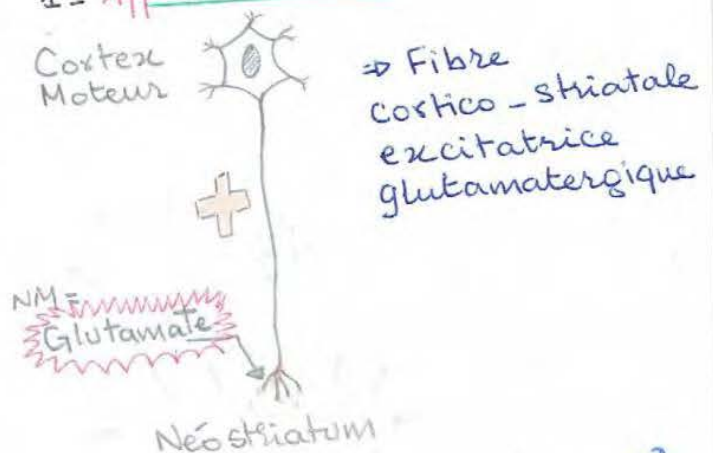 Cortex
Moteur
⇒ Fibre
cortico-striatale
excitatrice
glutamatergique
NM =
Glutamate
Néostriatum